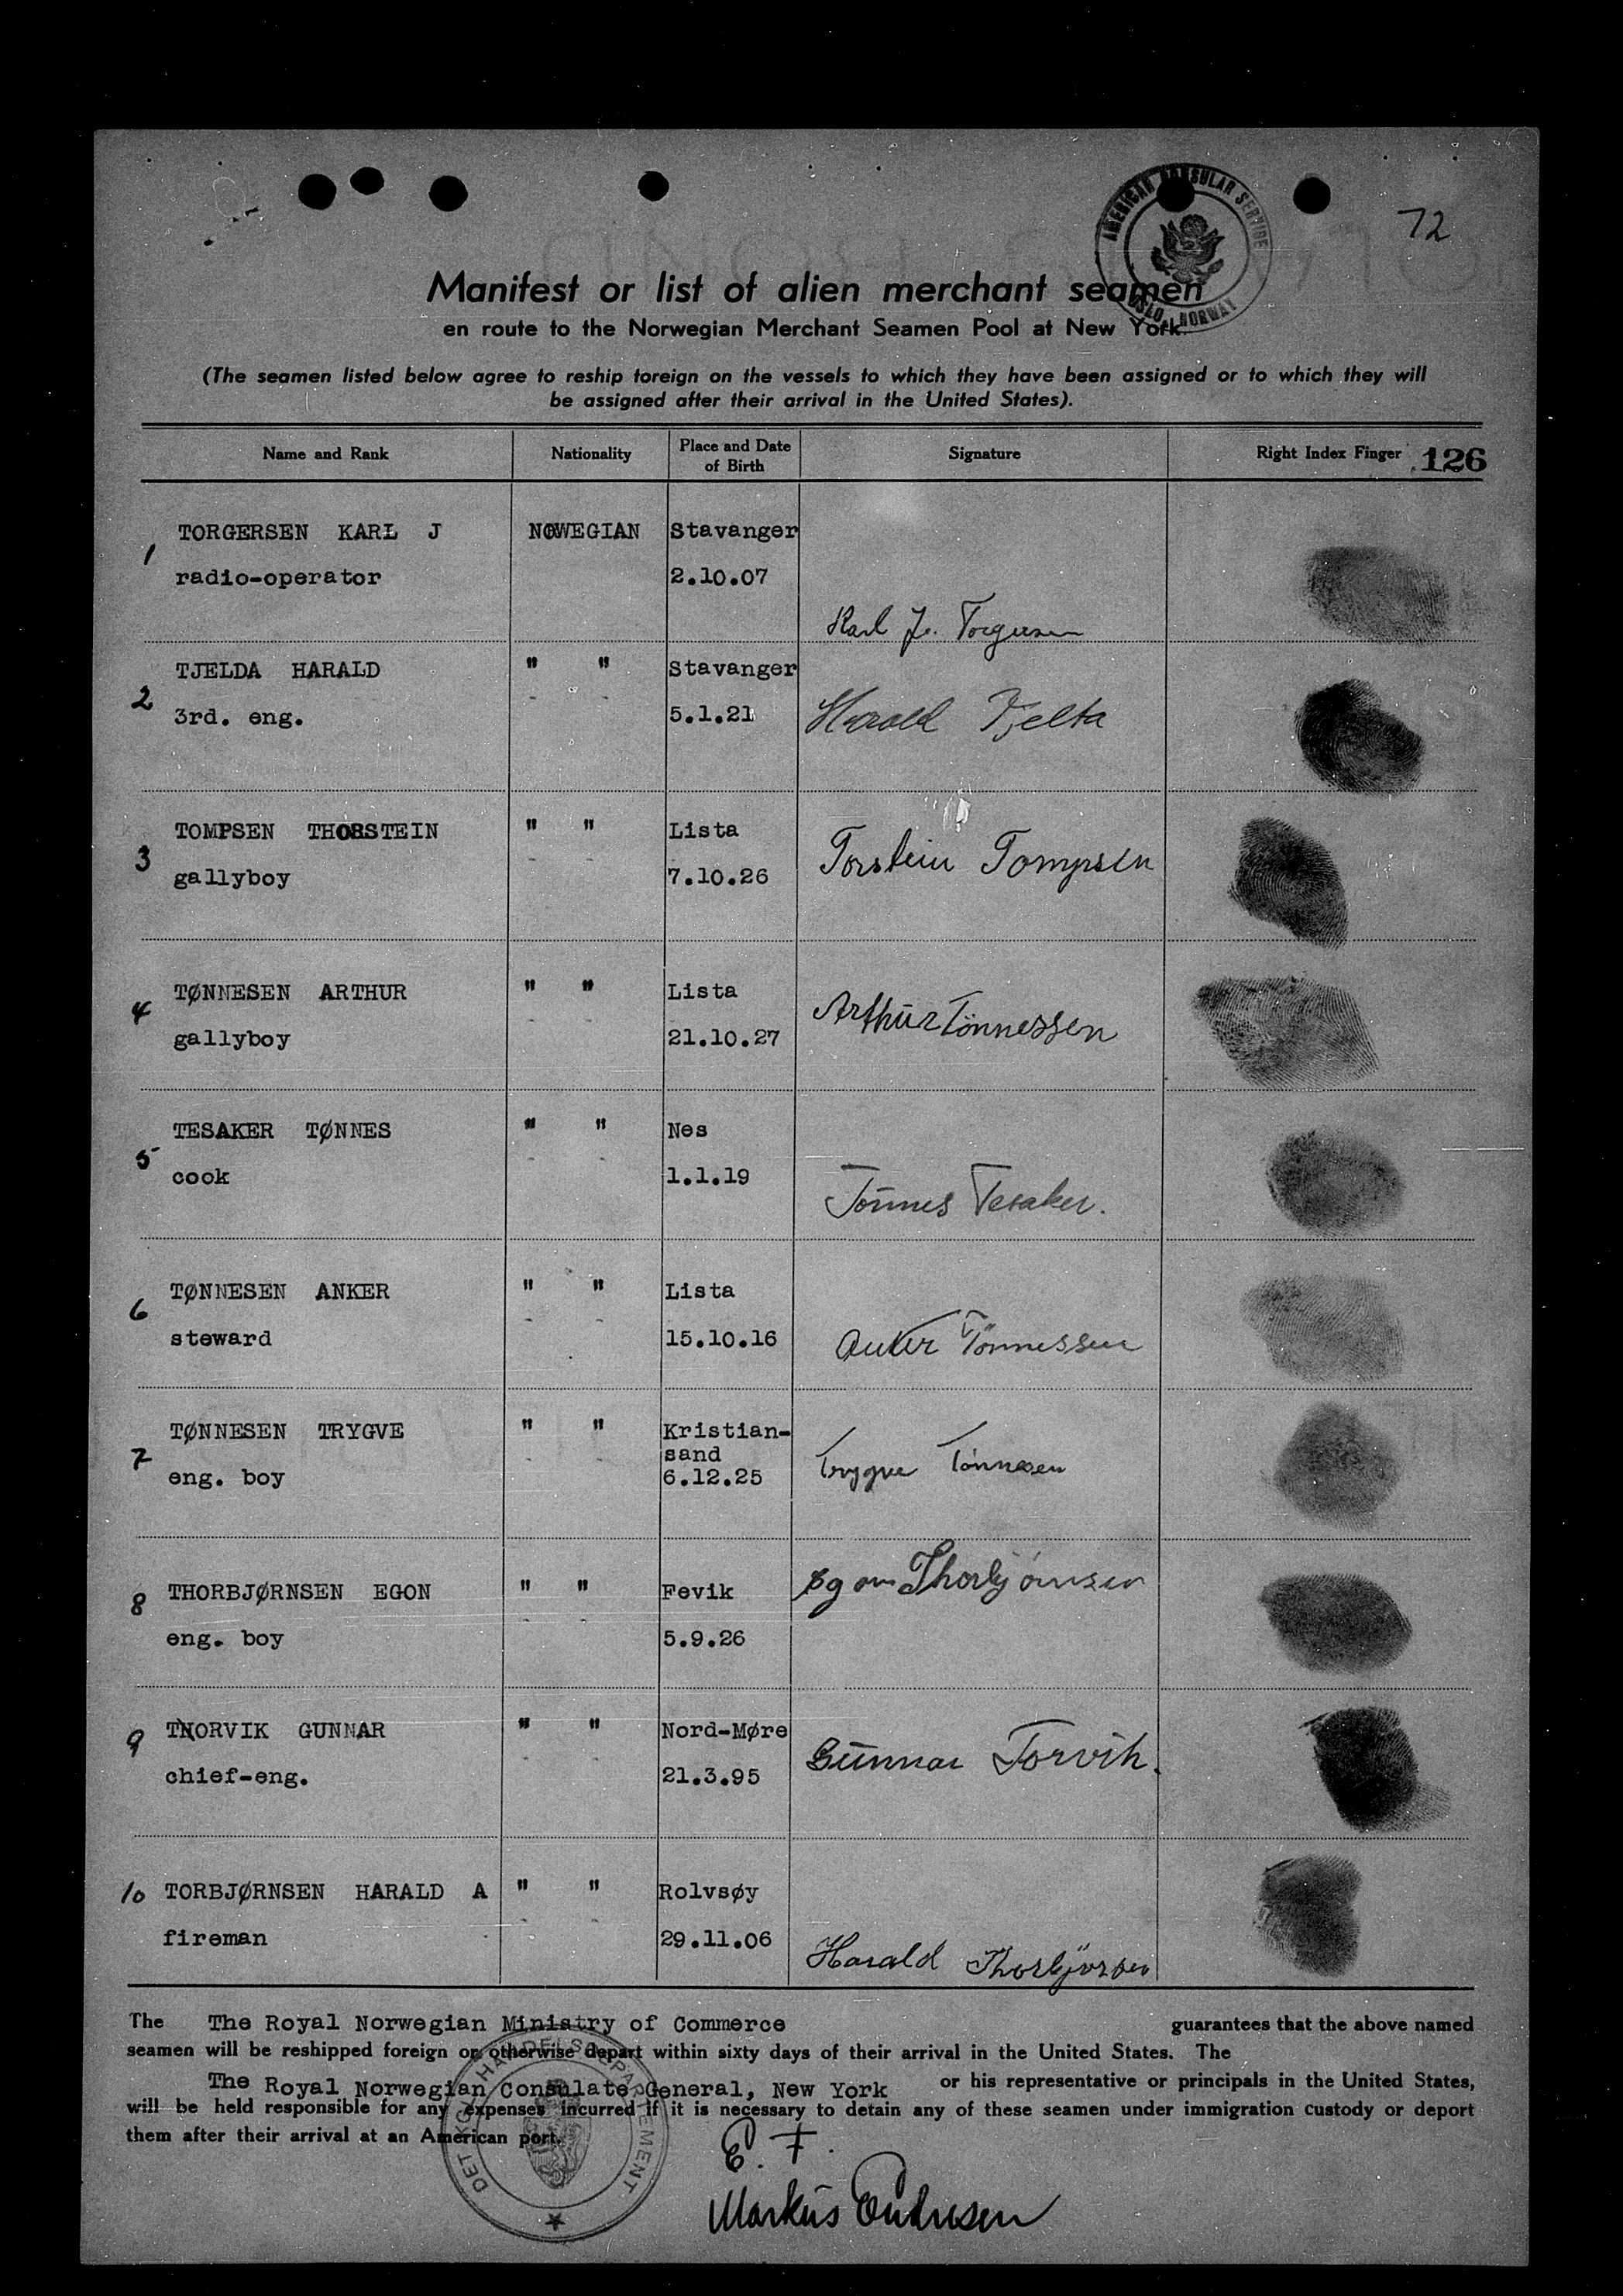 AMERICAN CONSULAR SERVICE
OSLO, NORWAY
72
Manifest or list of alien merchant seamen
en route to the Norwegian Merchant Seamen Pool at New York.
(The seamen listed below agree to reship foreign on the vessels to which they have been assigned or to which they will
be assigned after their arrival in the United States).
Name and Rank Nationality Place and Date of Birth Signature Right Index Finger 126
1 TORGERSEN KARL J NORWEGIAN Stavanger
radio-operator 2.10.07
Karl J. Torgersen
TJELDA HARALD " " Stavanger
2 3rd. eng. 5.1.21 Harald Tjelta
TOMPSEN THORSTEIN " " Lista
3 gallyboy 7.10.26 Torstein Tompsen
TØNNESEN ARTHUR " " Lista
4 gallyboy 21.10.27 Arthur Tönnessen
TESAKER TØNNES " " Nes
5 cook 1.1.19
Tønnes Tesaker.
TØNNESEN ANKER " " Lista
6 steward 15.10.16 Anker Tönnessen
TØNNESEN TRYGVE " " Kristian-
sand
7 eng. boy 6.12.25 Trygve Tønnesen
8 THORBJØRNSEN EGON " " Fevik Egon Thorbjørnsen
eng. boy 5.9.26
9 THORVIK GUNNAR " " Nord-Møre
chief-eng. 21.3.95 Gunnar Torvik.
10 TORBJØRNSEN HARALD A " " Rolvsøy
fireman 29.11.06
Harald Thorbjörnsen
The The Royal Norwegian Ministry of Commerce guarantees that the above named
seamen will be reshipped foreign or otherwise depart within sixty days of their arrival in the United States. The
The Royal Norwegian Consulate General, New York or his representative or principals in the United States,
will be held responsible for any expenses incurred if it is necessary to detain any of these seamen under immigration custody or deport
them after their arrival at an American port.
DET KGL. HANDELSDEPARTEMENT
E. F.
Markus Andresen